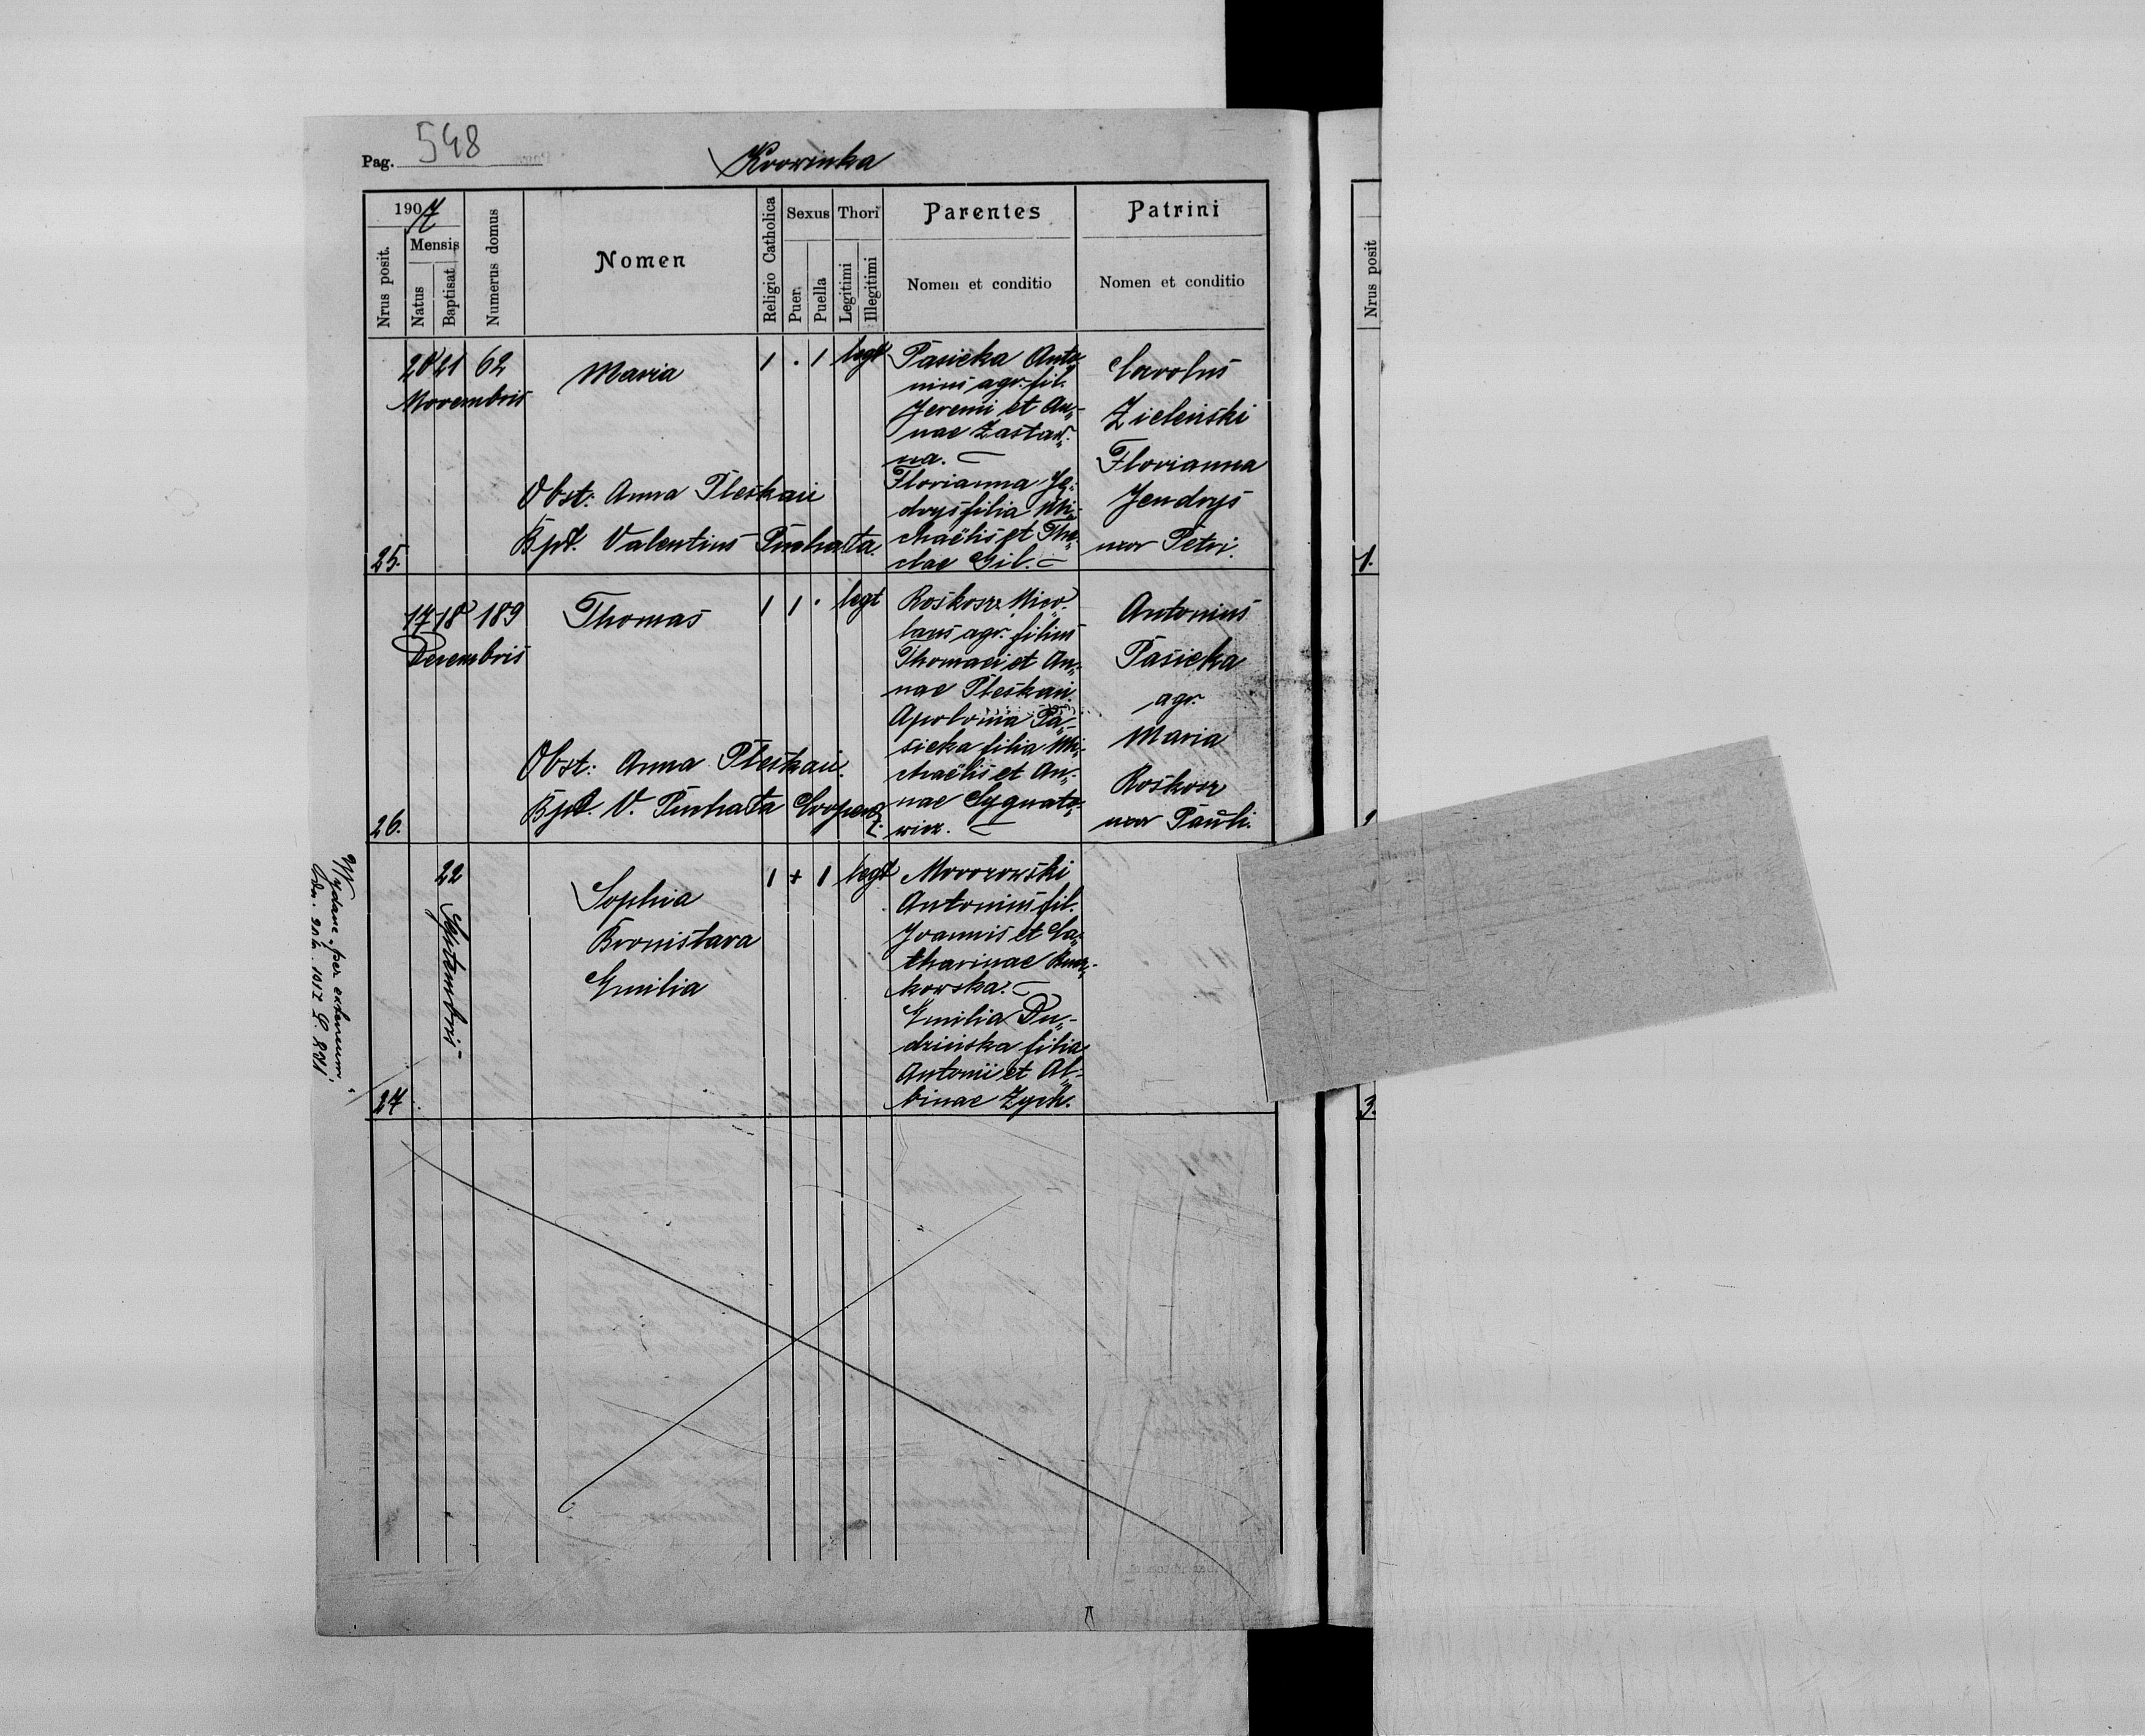 Pag. 548
Krowinka
1907
Nrus posit.
Mensis
Natus
Baptisat
Numerus domus
Nomen
Religio Catholica
Sexus
Puer
Puella
Thori
Legitimi
Illegitimi
Parentes
Nomen et conditio
Patrini
Nomen et conditio
Nrus posit
25.
20 21 62
Novembris
Maria
1 . 1 legt
Obst: Anna Pleskań
Bpt. Valentius Puchała.
Pasieka Anto-
nius agr. fil.
Jeremi et An-
nae Zastaw-
na.
Florianna Ję-
drys filia Mi-
chaëlis et The-
clae Gil.
Carolus
Zieleński
Florianna
Jendrys
uxor Petri.
1.
26.
17 18 189
Decembris
Thomas
1 1 . legt
Obst: Anna Pleskań.
Bpt. V. Puchała Cooper.
Roskosz Nico-
laus agr. filius
Thomaei et An-
nae Pleskań
Apolonia Pa-
sieka filia Mi-
chaëlis et An-
nae Sygnato-
wicz.
Antonius
Pasieka
agr.
Maria
Roskosz
uxor Pauli.
27
22
Septembris
Sophia
Bronislava
Emilia
1 + 1 legt
Morozowski
Antonius fil.
Joannis et Ca-
tharinae
kowska.
Emilia Du-
dzińska filia
Antonii et Al-
binae Zych.
3.
Wydane „per extensum"
1917 L. 831